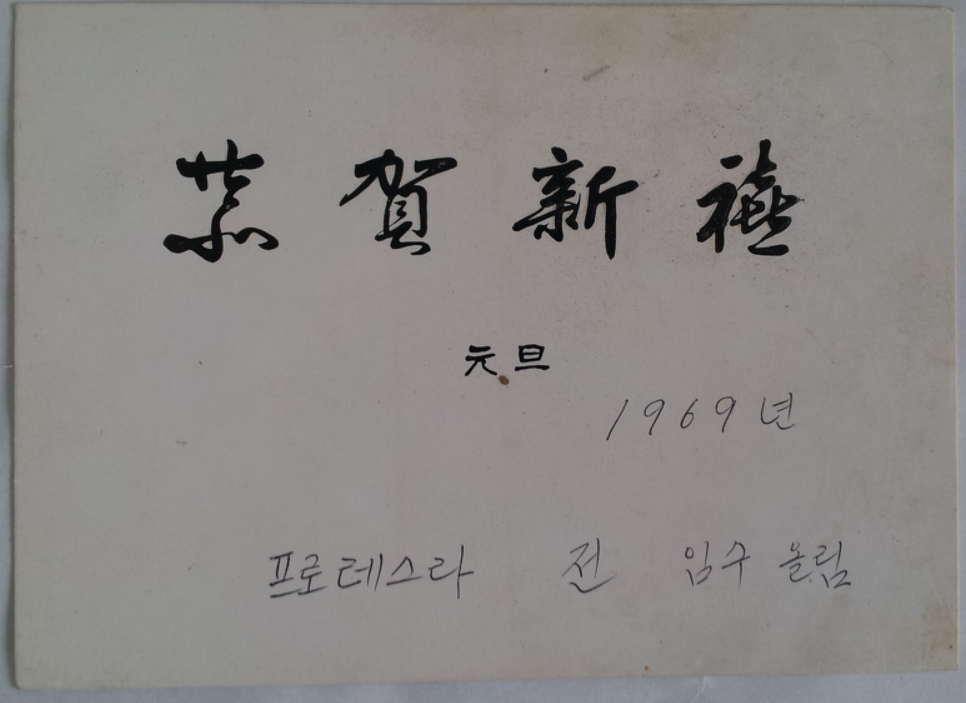 恭賀新禧
元旦
1969년
프로테스라 전 임수 올림